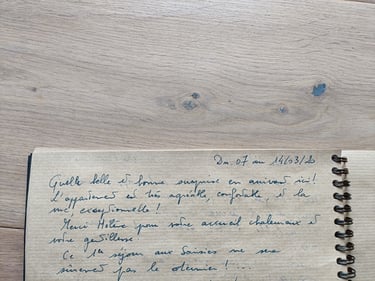 Du 07 au 14/03/20
Quelle belle et bonne surprise en arrivant ici!
L'appartement est très agréable, confortable, et la
vue, exceptionnelle!
Merci Hélène pour votre accueil chaleureux et
votre gentillesse.
Ce 1er séjour aux Saisies ne sera
sûrement pas le dernier! ...